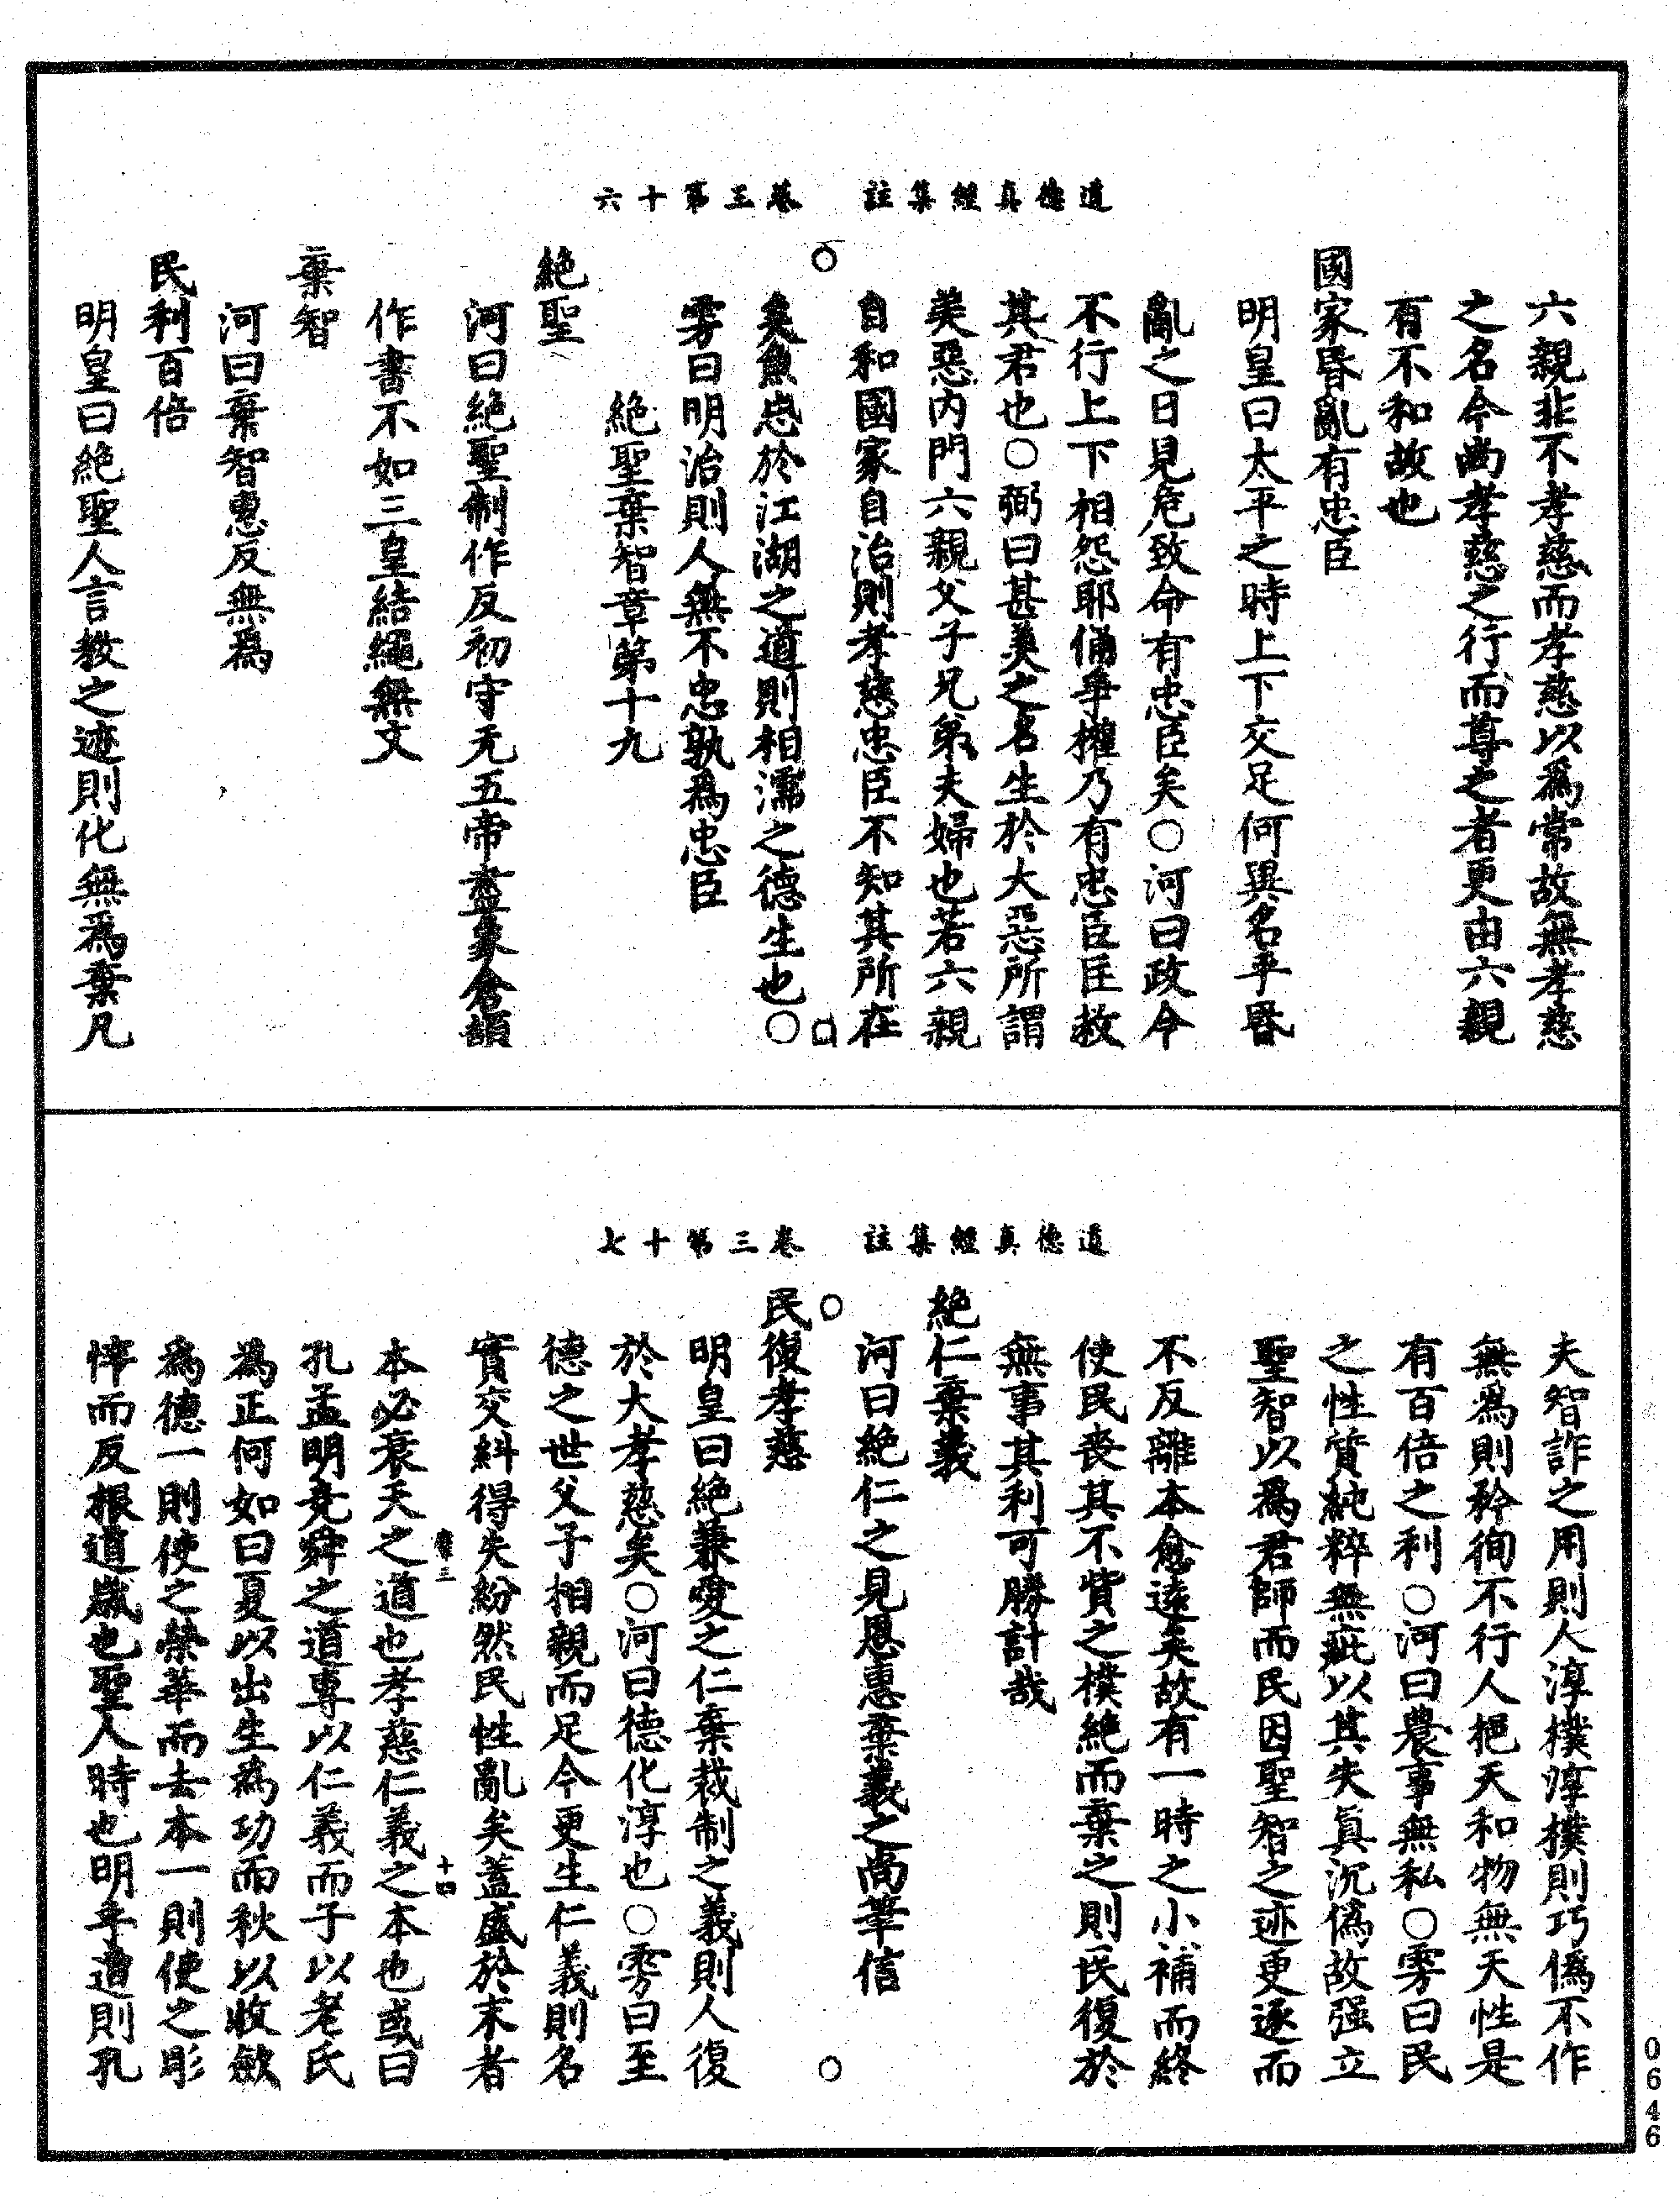 道德真經集註　卷三第十六
六親非不孝慈而孝慈以為常故無孝慈
之名今尚孝慈之行而尊之者更由六親
有不和故也
國家昬亂有忠臣
明皇曰太平之時上下交足何異名乎昬
亂之日見危致命有忠臣矣○河曰政令
不行上下相怨耶俑爭權乃有忠臣匡救
其君也○弼曰甚美之名生於大惡所謂
美惡內門六親父子兄弟夫婦也若六親
自和國家自治則孝慈忠臣不知其所在
矣魚忘於江湖之道則相濡之德生也○
雱曰明治則人無不忠孰為忠臣
絕聖棄智章第十九
絕聖
河曰絕聖制作反初守元五帝畫象倉頡
作書不如三皇結繩無文
棄智
河曰棄智惠反無為
民利百倍
明皇曰絕聖人言教之迹則化無為棄凡
道德真經集註　卷三第十七
夫智詐之用則人淳樸淳樸則巧偽不作
無為則矜徇不行人挹天和物無天性是
有百倍之利○河曰農事無私○雱曰民
之性質純粹無疵以其失真沉偽故强立
聖智以為君師而民因聖智之迹更逐而
不反離本愈遠矣故有一時之小補而終
使民喪其不貲之樸絕而棄之則民復於
無事其利可勝計哉
絕仁棄義
河曰絕仁之見恩惠棄義之尚華信
民復孝慈
明皇曰絕兼愛之仁棄裁制之義則人復
於大孝慈矣○河曰德化淳也○雱曰至
德之世父子相親而足今更生仁義則名
實交糾得失紛然民性亂矣蓋盛於末者
本必衰天之道也孝慈仁義之本也或曰
孔孟明堯舜之道專以仁義而子以老氏
為正何如曰夏以出生為功而秋以收斂
為德一則使之榮華而去本一則使之彫
悴而反根道歲也聖人時也明乎道則孔
十四
0646